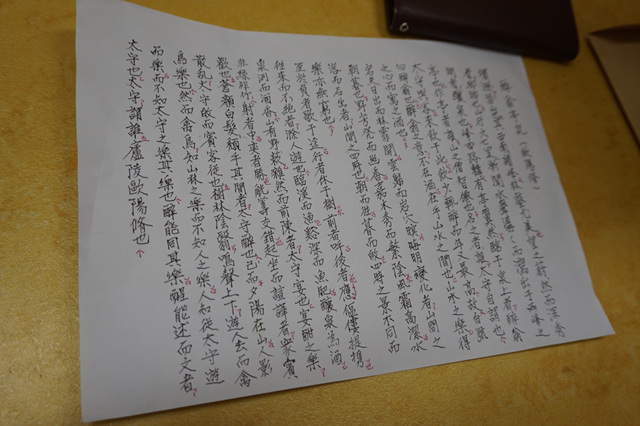 醉翁亭記（歐陽脩）
環滁皆山也其西南諸峰林壑尤美望之蔚然而深秀
者瑯琊也山行六七里漸聞水聲潺潺而瀉出于兩峰之
間者釀泉也峰回路轉有亭翼然臨于泉上者醉翁
亭也作亭者誰山之僧智僊也名之者誰太守自謂也
太守與客來飲于此飲少輒醉而年又最高故自號
曰醉翁也醉翁之意不在酒在乎山水之間也山水之樂得
之心而寓之酒也
若夫日出而林霏開雲歸而岩穴暝晦明變化者山間之
朝暮也野芳發而幽香嘉木秀而繁陰風霜高潔水
落而石出者山間之四時也朝而往暮而歸四時之景不同而
樂亦無窮也
至於負者歌于途行者休于樹前者呼後者應傴僂提攜
往來而不絕者滁人遊也臨溪而漁溪深而魚肥釀泉為酒
泉洌而酒香山肴野蔌雜然而前陳者太守宴也宴酣之樂
非絲非竹射者中奕者勝觥籌交錯起坐而諠譁者眾賓
歡也蒼顏白髮頹乎其間者太守醉也已而夕陽在山人影
散亂太守歸而賓客從也樹林陰翳鳴聲上下遊人去而禽
鳥樂也然而禽鳥知山林之樂而不知人之樂人知從太守遊
而樂而不知太守之樂其樂也醉能同其樂醒能述而文者
太守也太守謂誰廬陵歐陽脩也